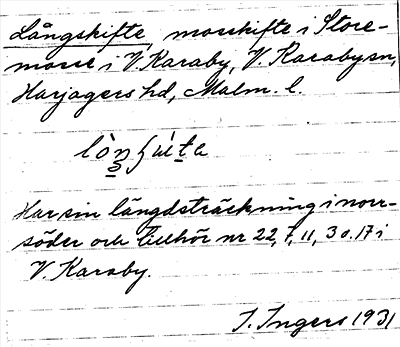 Långskifte, mosskifte i Store-
mosse i V. Karaby, V. Karabysn,
Harjagers hd, Malm. l.
Har sin längdsträckning i norr-
söder och tillhör nr 22, 7, 11, 3 o. 17 i
V. Karaby.
I. Ingers 1931